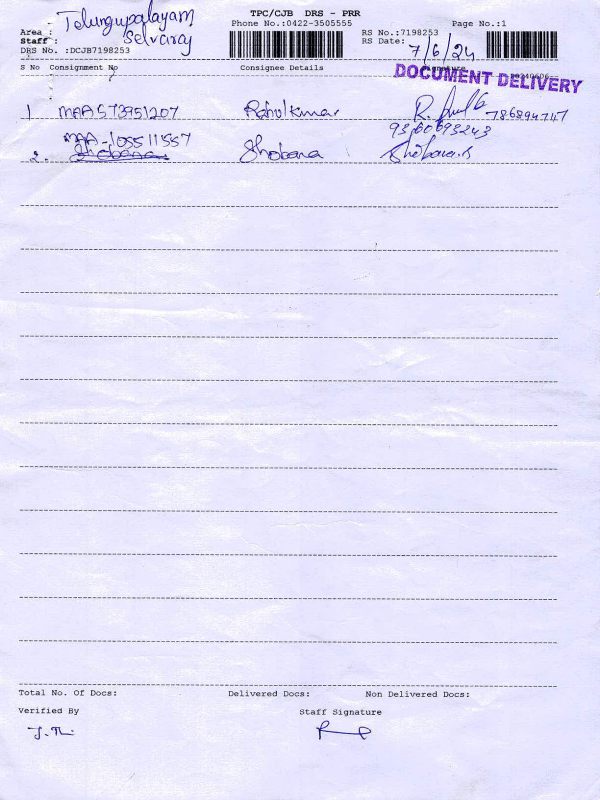 TPC/CJB DRS - PRR
Telungupalayam
Phone No.:0422-3505555
Page No.:1
Area :
RS No.:7198253
Staff : Selvaraj
RS Date: 7/6/24
DRS No. :DCJB7198253
S No Consignment No Consignee Details Signature
DOCUMENT DELIVERY
1 MAA573951207 Rahulkumar 786894747
9360693243
MAA-105511557
2. Shobana Shobana Shobana.s
Total No. Of Docs: Delivered Docs: Non Delivered Docs:
Verified By Staff Signature